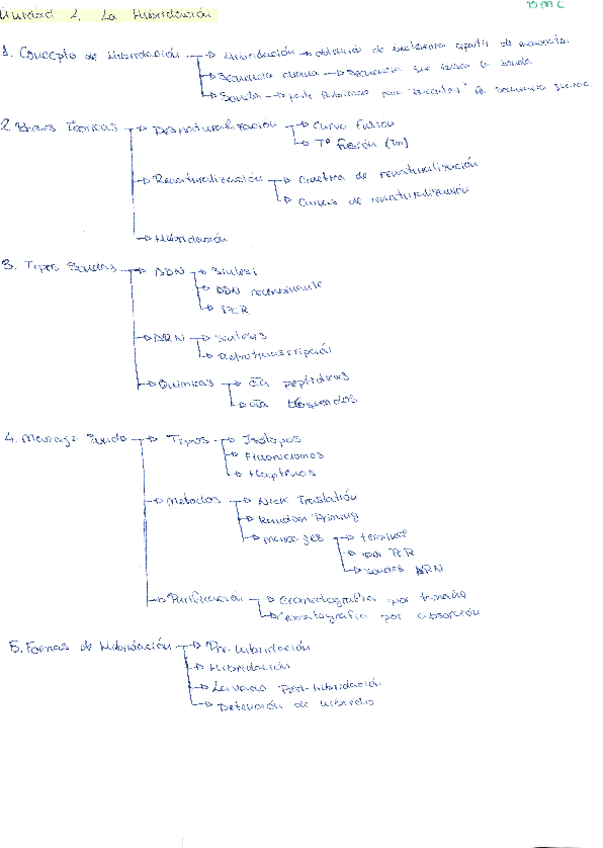 Unidad 2. La Hibridación
BMC
1. Concepto de Hibridación → Hibridación → obtención de a partir de
→ Secuencia diana → Secuencia que busca la sonda
→ Sonda → para "encontrar" la secuencia
2. Bases Técnicas → Desnaturalización → Curva fusión
→ Tº Fusión (Tm)
→ Renaturalización → Cinética de renaturalización
→ Curvas de renaturalización
→ Hibridación
3. Tipos Sondas → ADN → Síntesi
→ ADN recombinante
→ PCR
→ ARN → Síntesis
→ Retrotranscripción
→ Químicas → peptídicos
→ bloqueados
4. Marcaje Sonda → Tipos → Isótopos
→ Fluorocromos
→ Haptenos
→ Métodos → Nick Traslation
→ Random Priming
→ Marcajes → terminal
→ PCR
→ sondas ARN
→ Purificación → Cromatografía por tamaño
→ Cromatografía por absorción
5. Formas de Hibridación → Pre-hibridación
→ Hibridación
→ Lavados Post-hibridación
→ Detención de híbrido